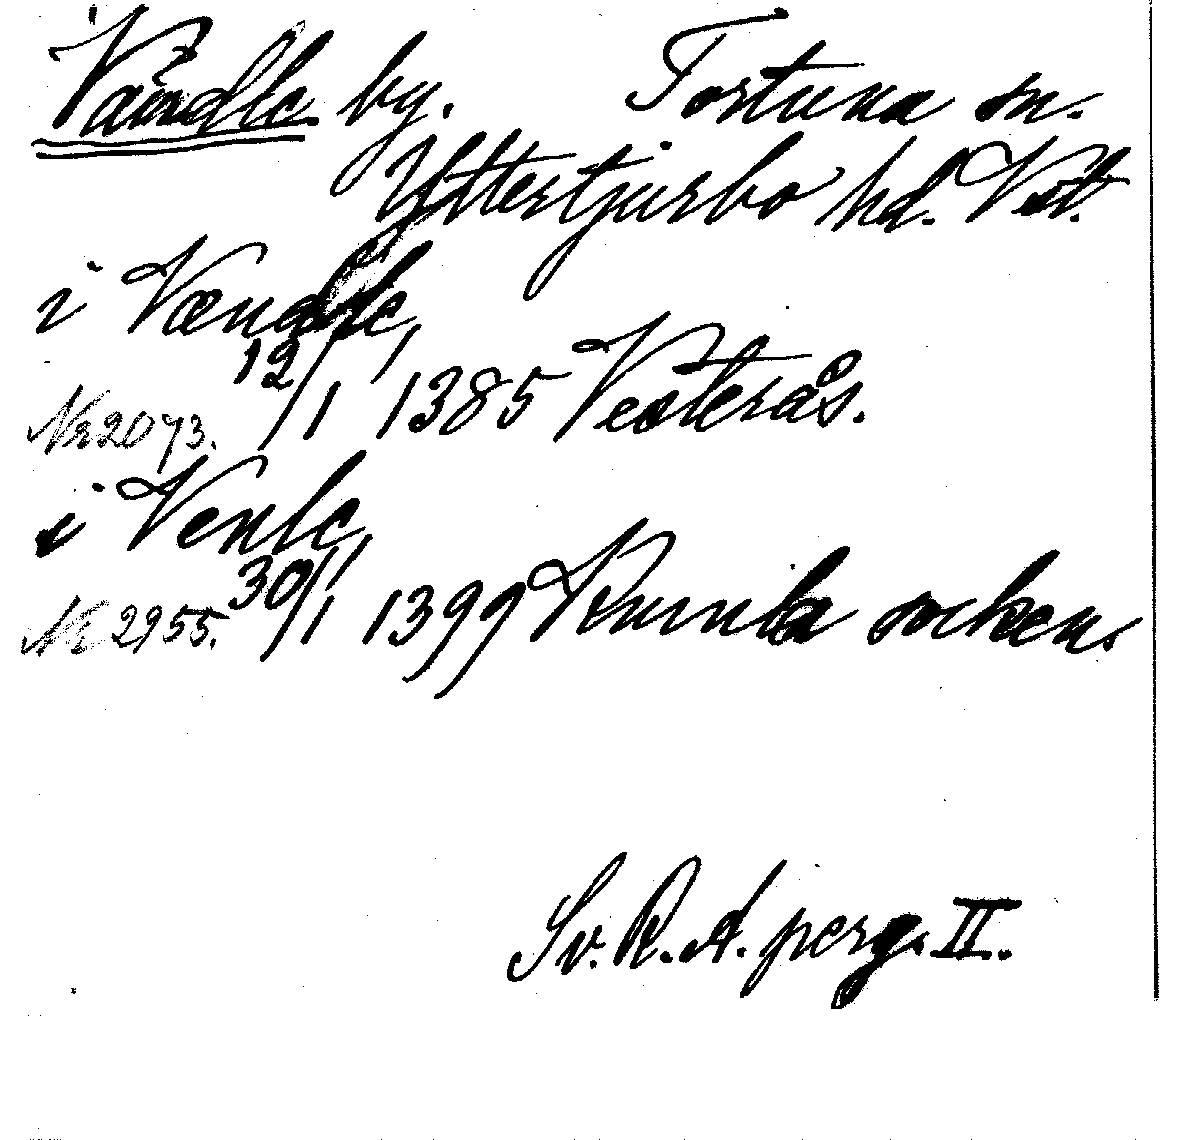 Vändle by. Tortuna sn.
Yttertjurbo hd. Vstl.
i Vændle,
Nr 2073. 12/1 1385 Vesterås.
i Venle,
Nr 2955. 30/1 1399 Kumla socken.
Sv. R. A. perg. II.